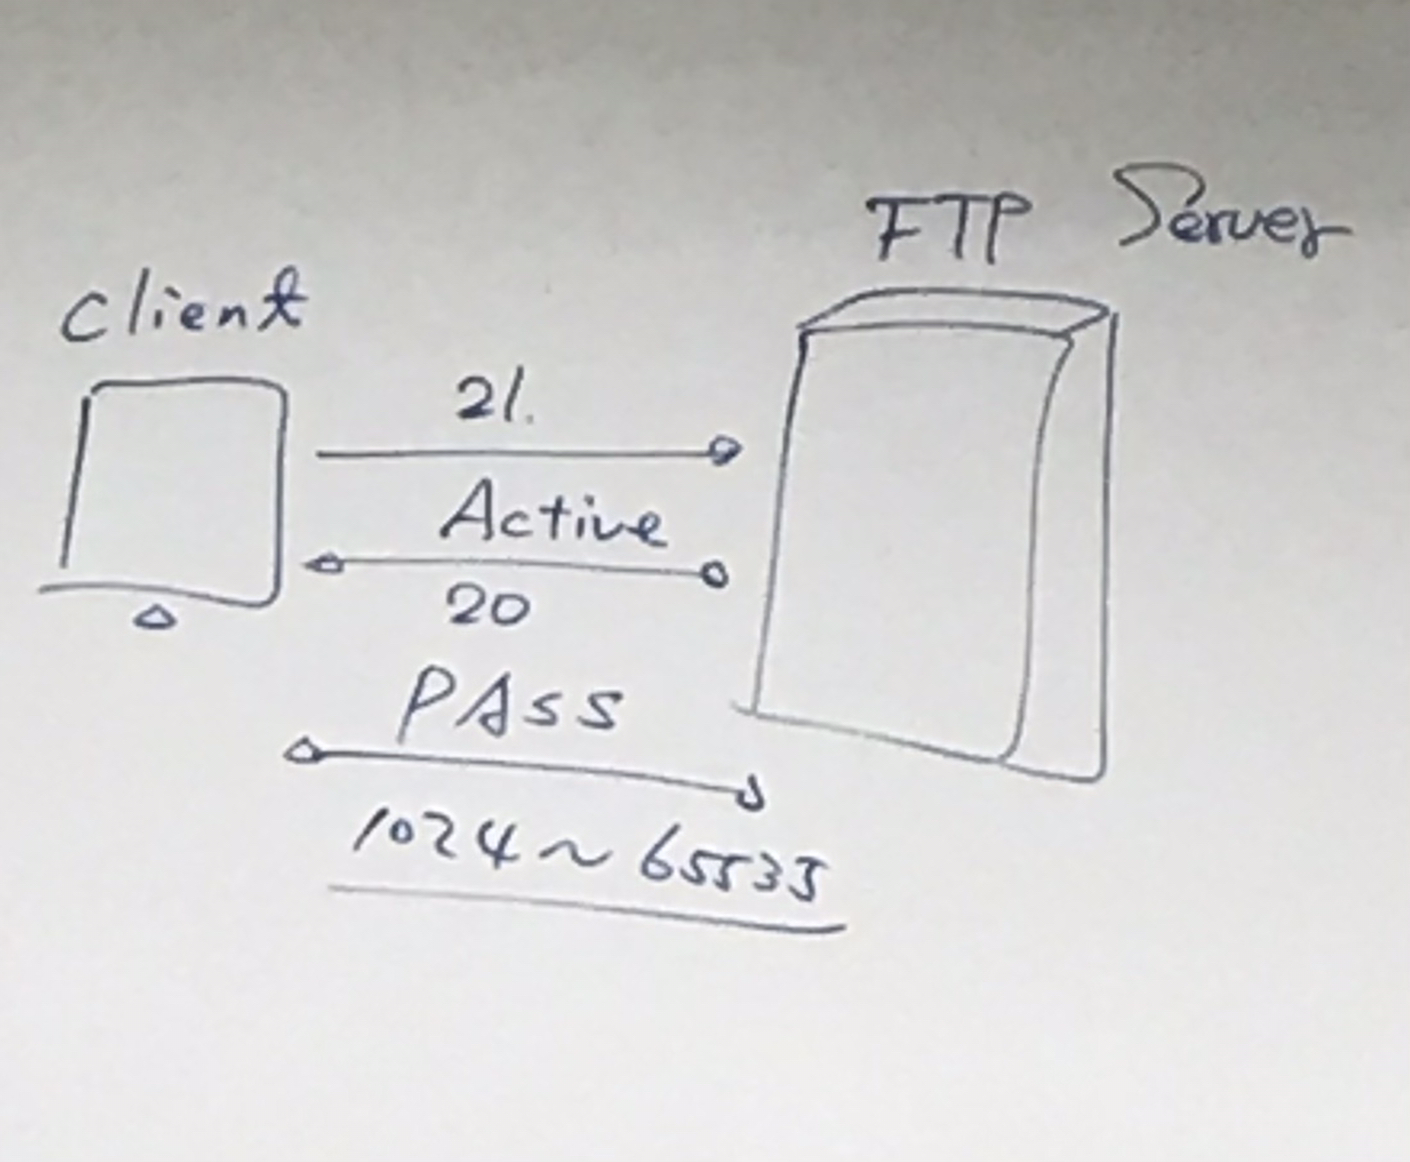 FTP Server
Client
21.
Active
20
PASS
1024~65535